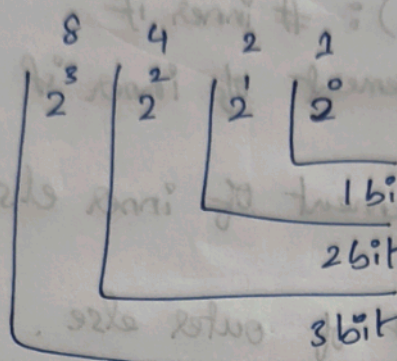 8 4 2 1
2³ 2² 2¹ 2⁰
1 bi
2 bit
3 bit